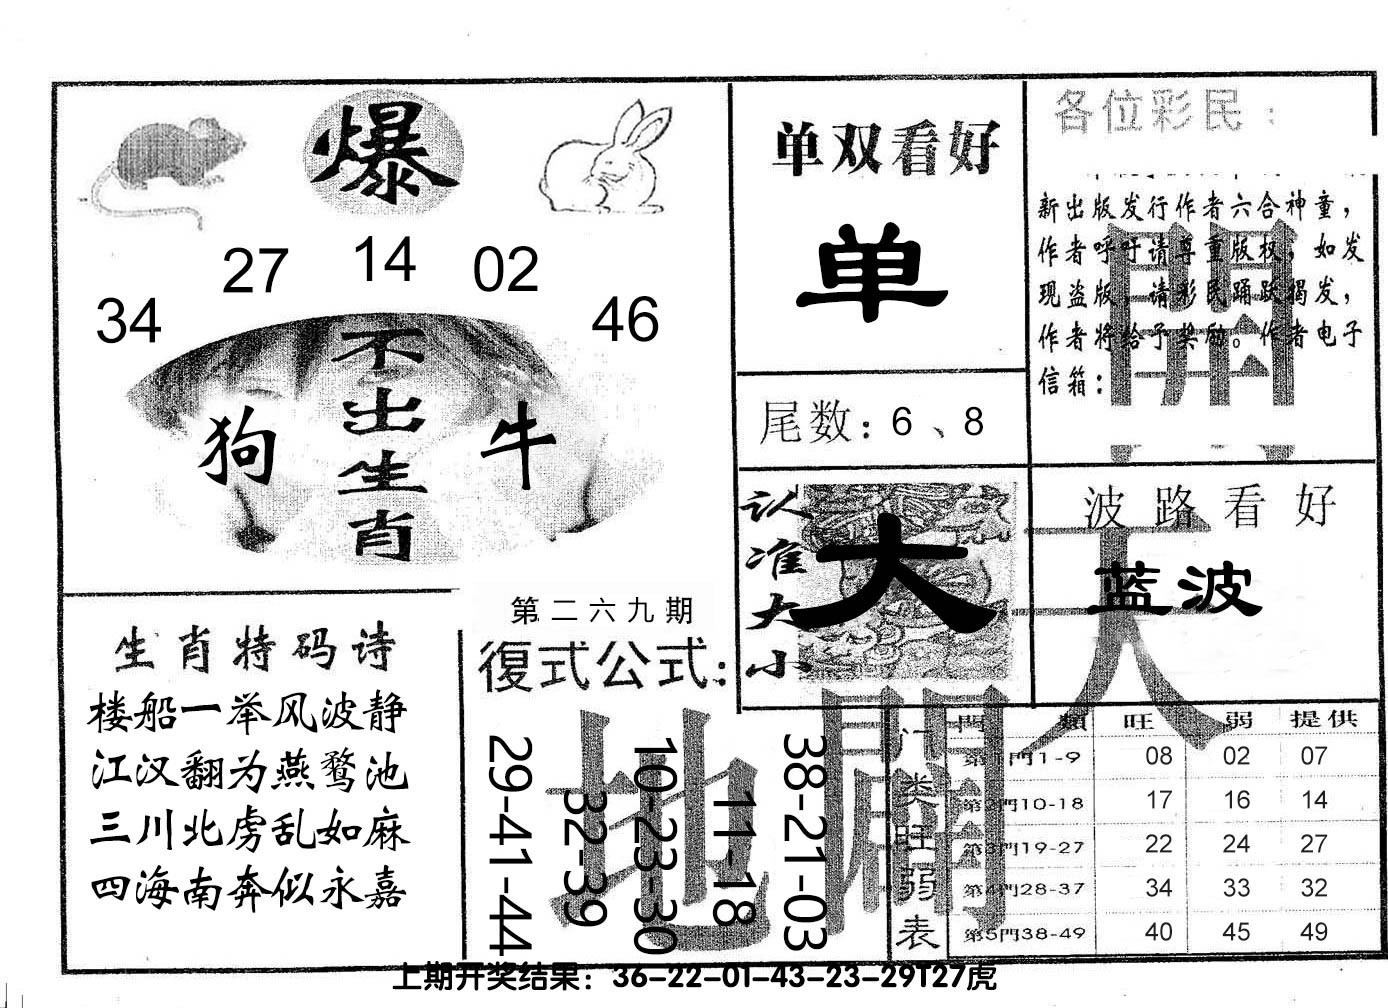 爆
27 14 02
34 46
不出生肖
狗 牛
单双看好
单
尾数：6、8
认准大小
大
各位彩民：
新出版发行作者六合神童，
作者呼吁请尊重版权，如发
现盗版，请彩民踊跃揭发，
作者将给予奖励。作者电子
信箱：
波路看好
蓝波
天
地
生肖特码诗
楼船一举风波静
江汉翻为燕鹜池
三川北虏乱如麻
四海南奔似永嘉
第二六九期
復式公式：
29-41-44
32-39
10-23-30
11-18
38-21-03
门类旺弱表
門類 旺 弱 提供
第1門1-9 08 02 07
第2門10-18 17 16 14
第3門19-27 22 24 27
第4門28-37 34 33 32
第5門38-49 40 45 49
上期开奖结果：36-22-01-43-23-29T27虎